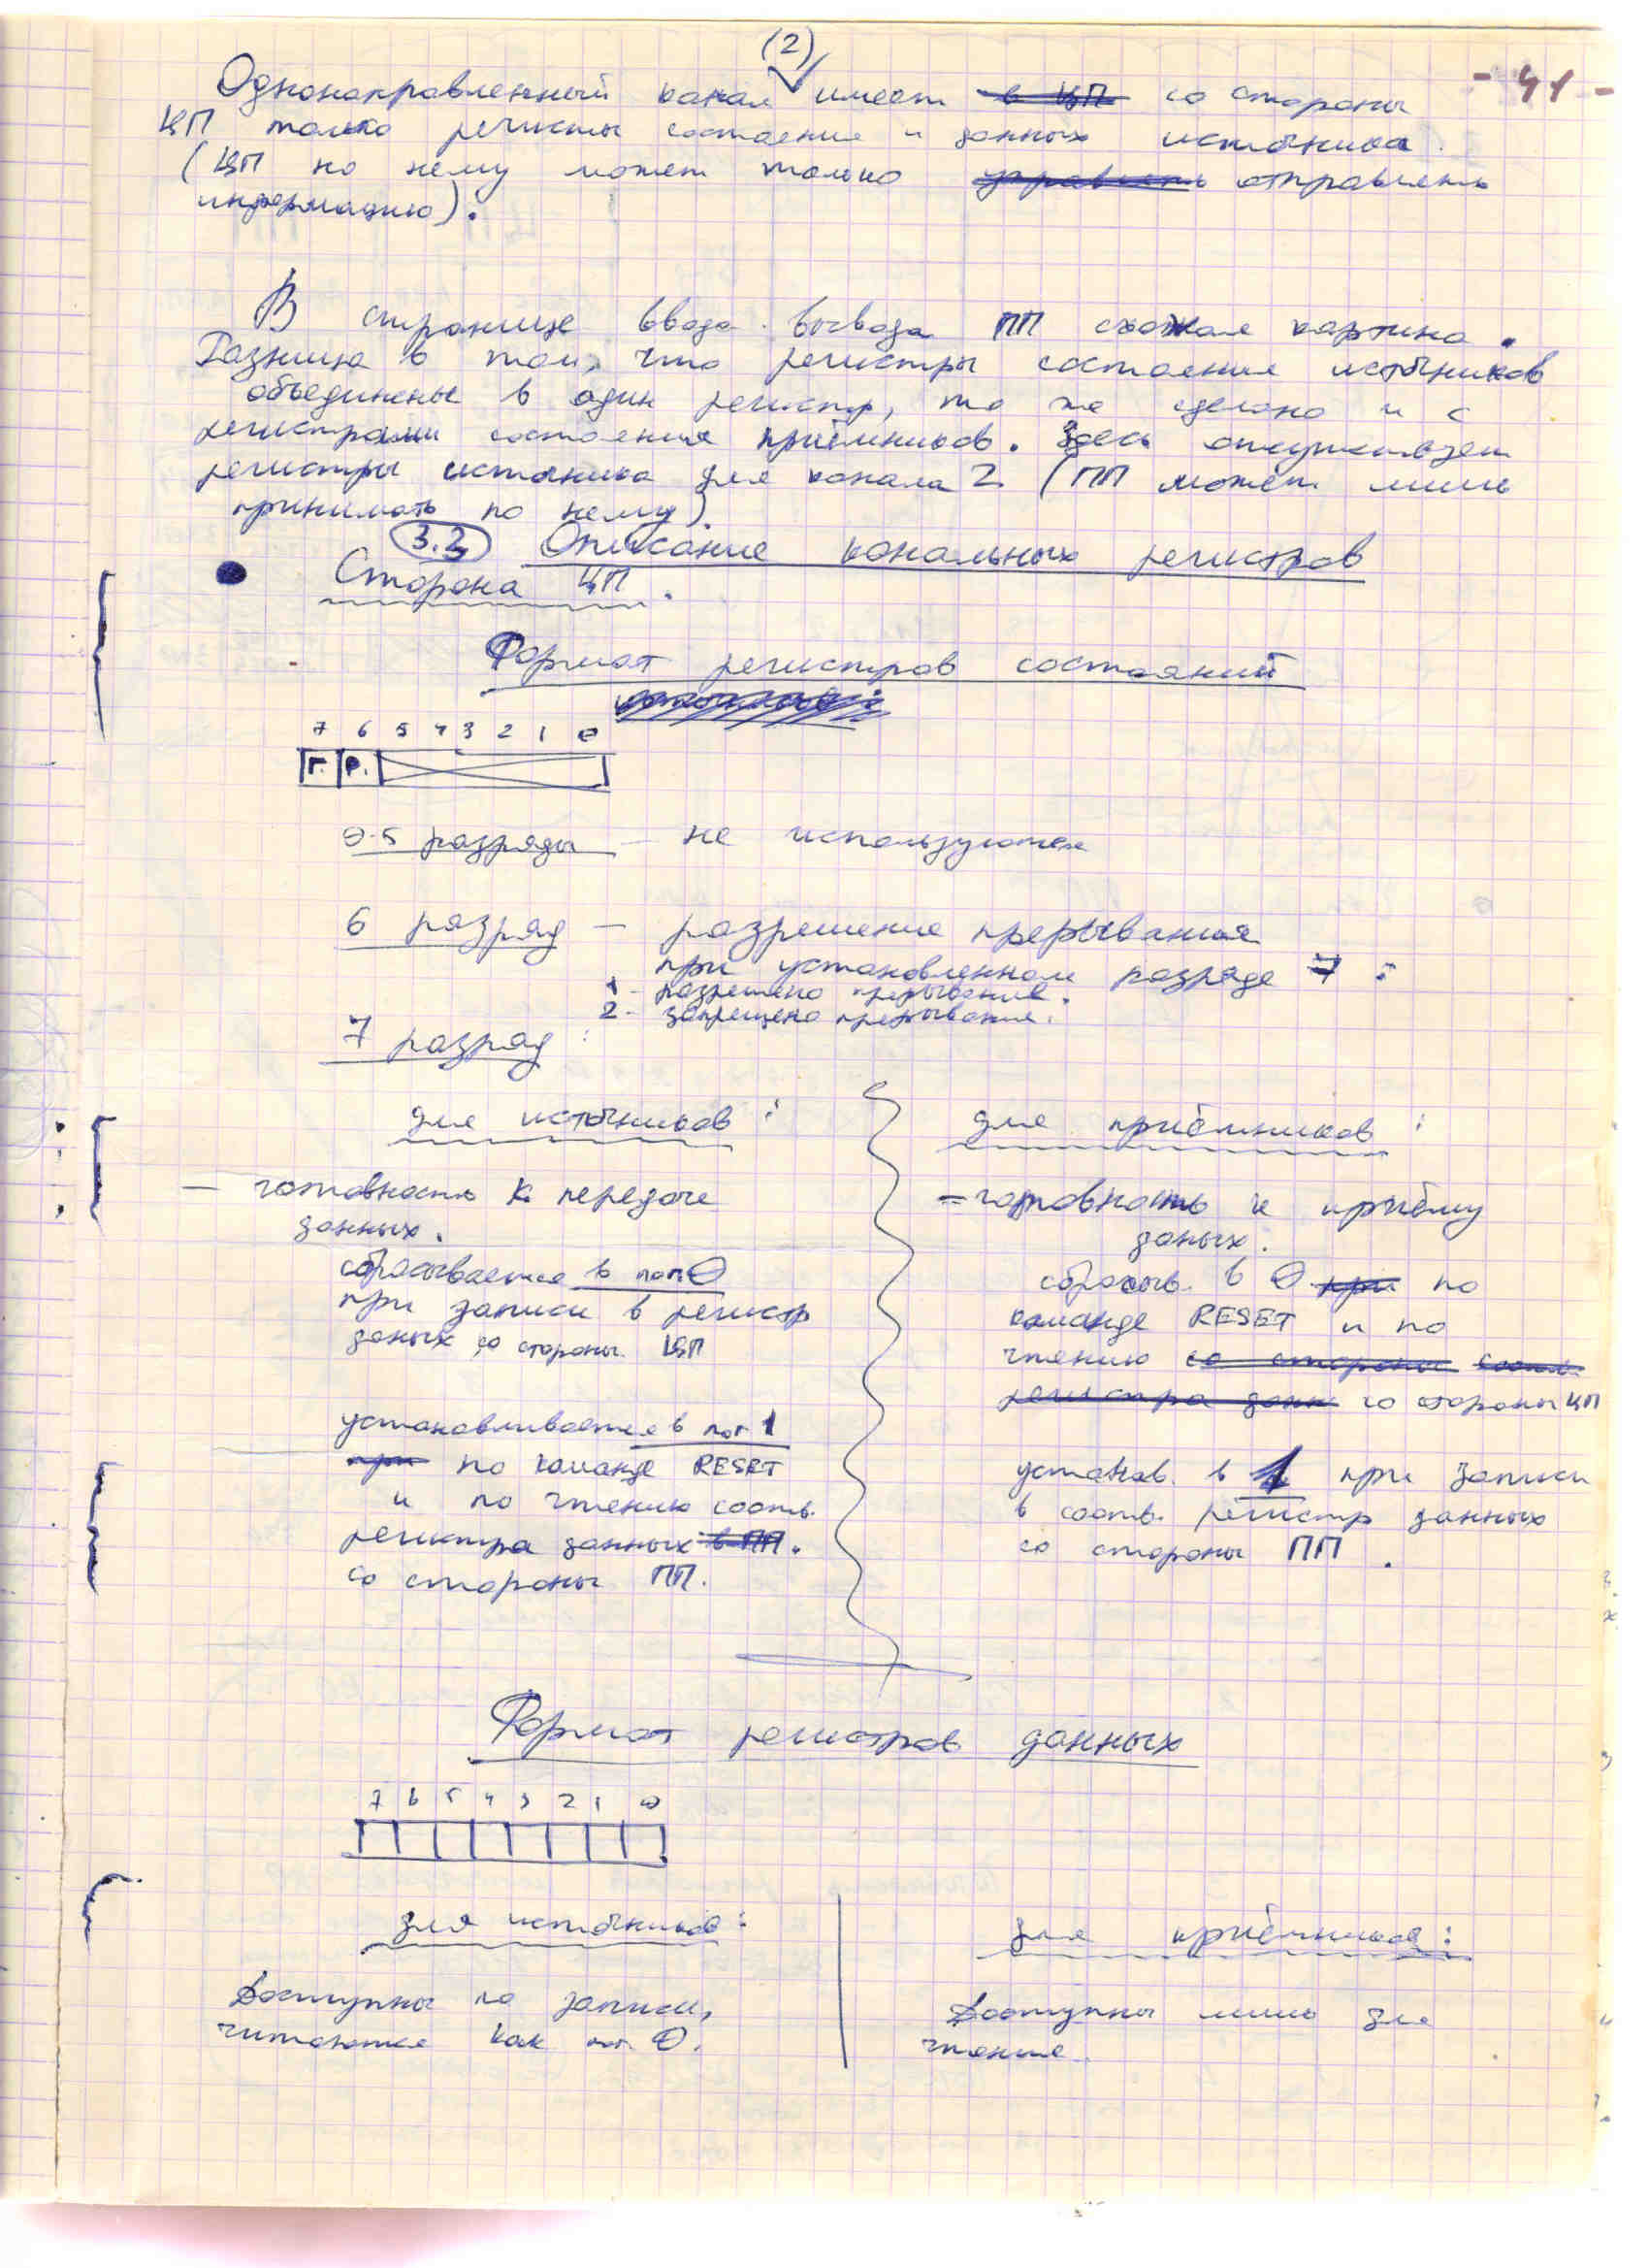 - 41 -
(2)
Однонаправленный канал имеет в ЦП со стороны
ЦП только регистры состояния и данных источника.
(ЦП по нему может только управлять отправлять
информацию).
В странице ввода-вывода ПП схожая картина.
Разница в том, что регистры состояния источников
объединены в один регистр, то же сделано и с
регистрами состояния приёмников. Здесь отсутствуют
регистры источника для канала 2 (ПП может лишь
принимать по нему).
3.3 Описание канальных регистров
Сторона ЦП.
Формат регистров состояний
7 6 5 4 3 2 1 0
Г. Р.
0-5 разряды - не используются
6 разряд - разрешение прерывания
при установленном разряде 7:
1 - разрешено прерывание.
2 - запрещено прерывание.
7 разряд:
для источников:
- готовность к передаче
данных.
сбрасывается в лог 0
при записи в регистр
даных со стороны ЦП
устанавливается в лог 1
при по команде RESET
и по чтению соотв.
регистра данных в ПП.
со стороны ПП.
для приёмников:
- готовность к приёму
даных.
сбросыв. в 0 при по
команде RESET и по
чтению со стороны соотв.
регистра данн со стороны ЦП
установ. в 1 при записи
в соотв. регистр данных
со стороны ПП.
Формат регистров данных
7 6 5 4 3 2 1 0
для источников:
Доступны по записи,
читаются как лог. 0.
для приёмников:
Доступны лишь для
чтения.